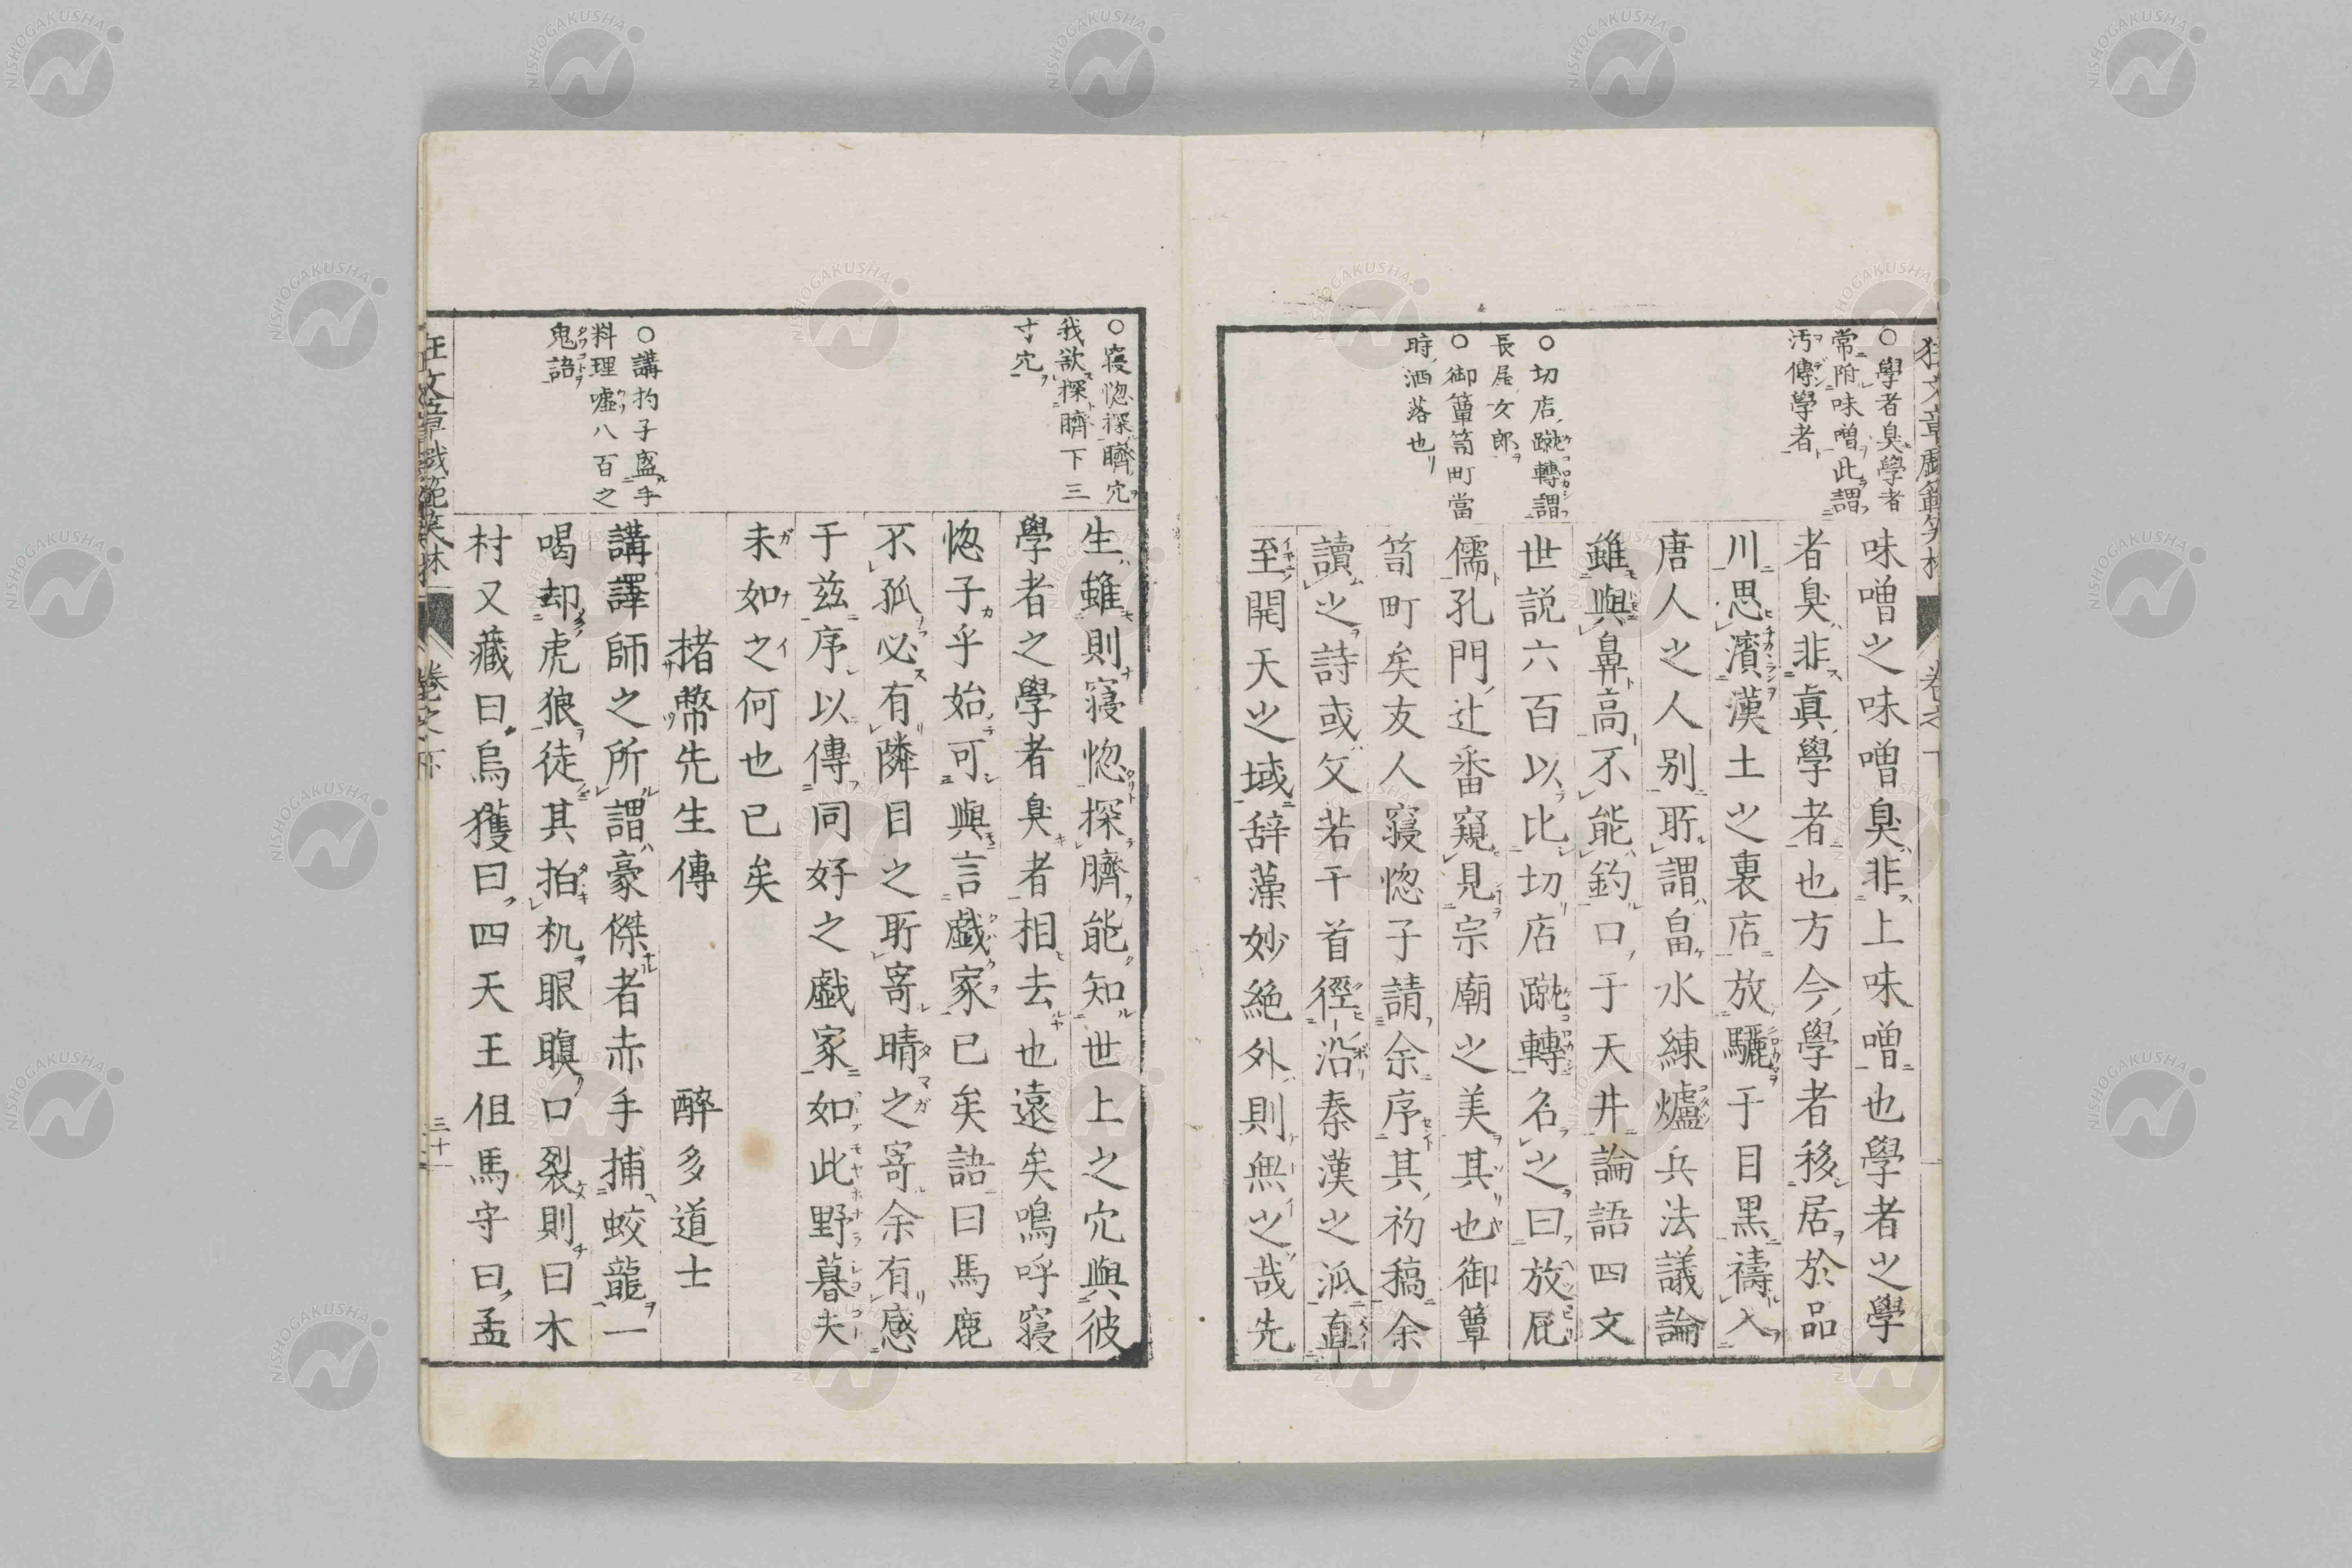 ○學者臭學者
常附味噌此謂
汚傳學者
○切店蹴轉謂
長屋女郎
○御簞笥町當
時洒落也
味噌之味噌臭非上味噌也學者之學
者臭非眞學者也方今學者移居於品
川思濱漢土之裏店放驪于目黒禱入
唐人之人別所謂畠水練爐兵法議論
雖與鼻高不能釣口于天井論語四文
世説六百以比切店蹴轉名之曰放屁
儒孔門辻番窺見宗廟之美其也御簞
笥町矣友人寝惚子請余序其初稿余
讀之詩或文若干首徑沿秦漢之派直
至開天之域辞藻妙絶外則無之哉先
○寝惚探臍穴
我欲探臍下三
寸穴
○講釣子盛手
料理嘘八百之
鬼語
生雖則寝惚探臍能知世上之穴與彼
學者之學者臭者相去也遠矣嗚呼寝
惚子乎始可與言戯家已矣語曰馬鹿
不孤必有隣目之所寄晴之寄余有感
于兹序以傳同好之戯家如此野暮夫
未如之何也已矣
楮幣先生傳　醉多道士
講譯師之所謂豪傑者赤手捕蛟龍一
喝却虎狼徒其拍机眼瞋口裂則曰木
村又藏曰烏獲曰四天王但馬守曰孟
狂文章戯範笑林　卷之下　三十一